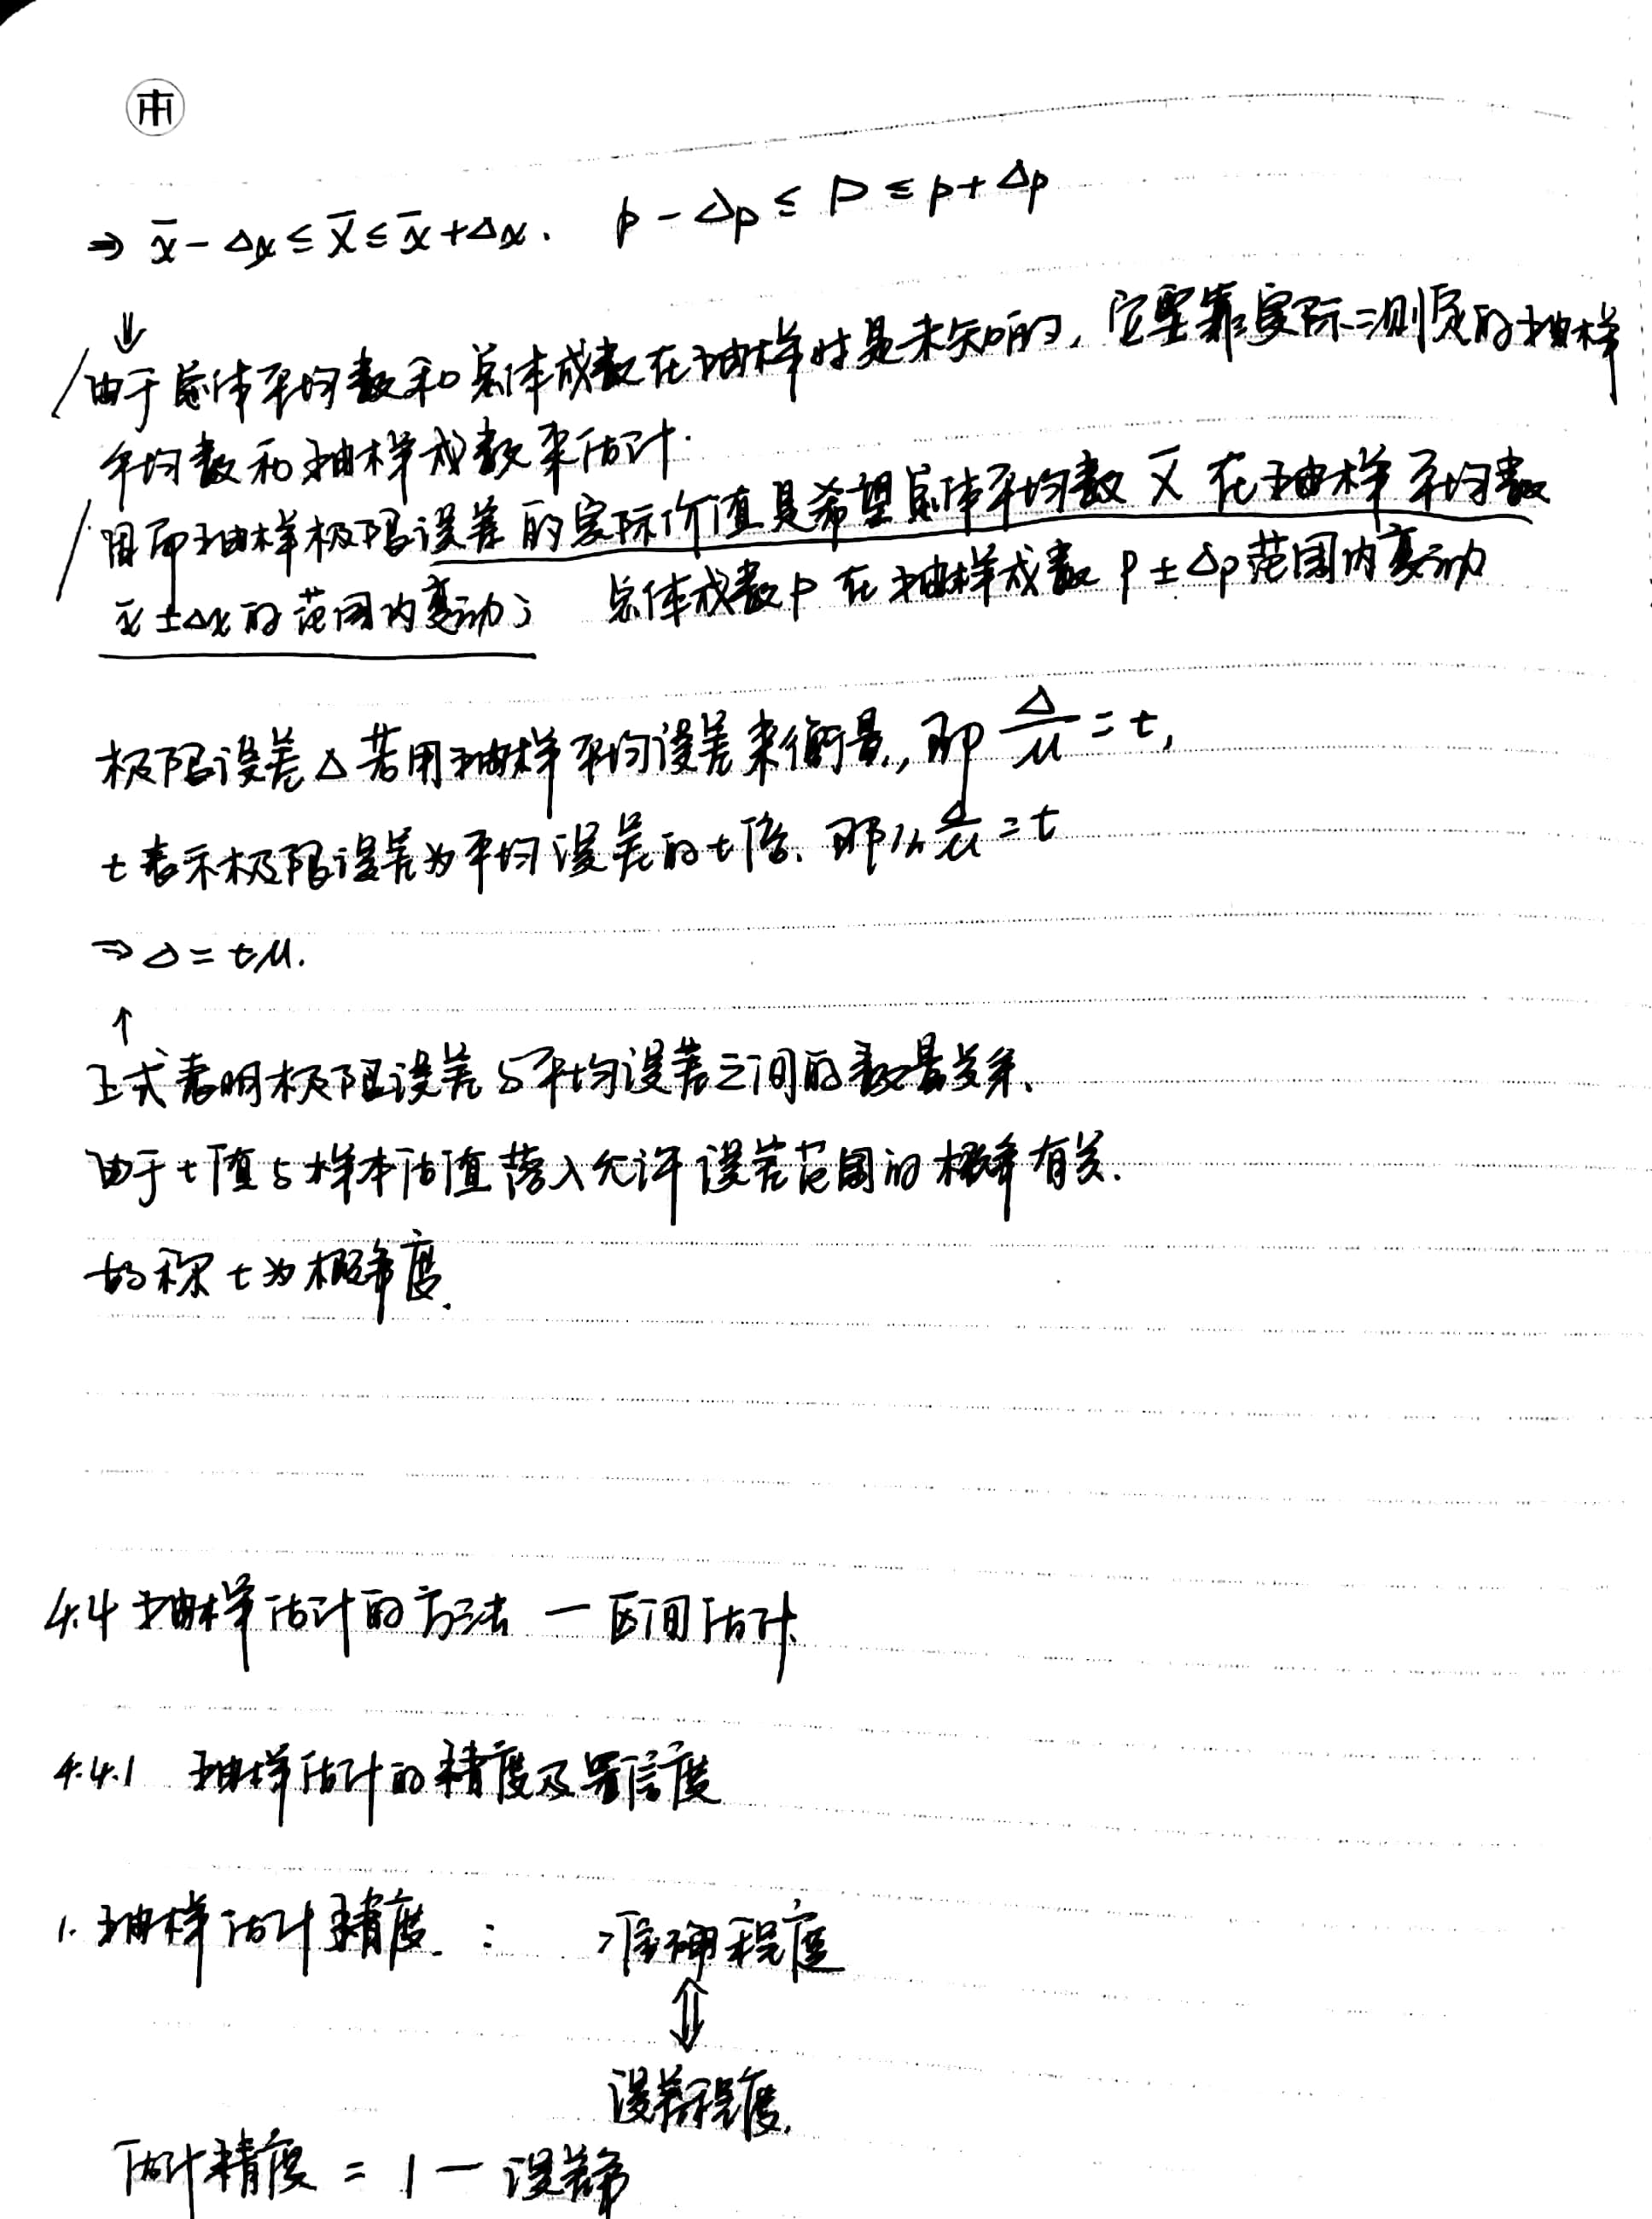 ⇒ x̄ - Δx ≤ X̄ ≤ x̄ + Δx. p - Δp ≤ P ≤ p + Δp
⇓
由于总体平均数和总体成数在抽样时是未知的, 它要靠实际测定的抽样
平均数和抽样成数来估计.
因而抽样极限误差的实际价值是希望总体平均数 X̄ 在抽样平均数
x̄ ± Δx 的范围内变动; 总体成数 P 在抽样成数 p ± Δp 范围内变动
极限误差 Δ 若用抽样平均误差来衡量, 即 Δ/μ = t,
t 表示极限误差为平均误差的 t 倍. 那从 Δ/μ = t
⇒ Δ = tμ.
↑
上式表明极限误差与平均误差之间的数量关系.
由于 t 值与样本估值落入允许误差范围的概率有关.
故称 t 为概率度.
4.4 抽样估计的方法 — 区间估计
4.4.1 抽样估计的精度及置信度
1. 抽样估计精度 : 准确程度
⇕
误差程度.
估计精度 = 1 — 误差率